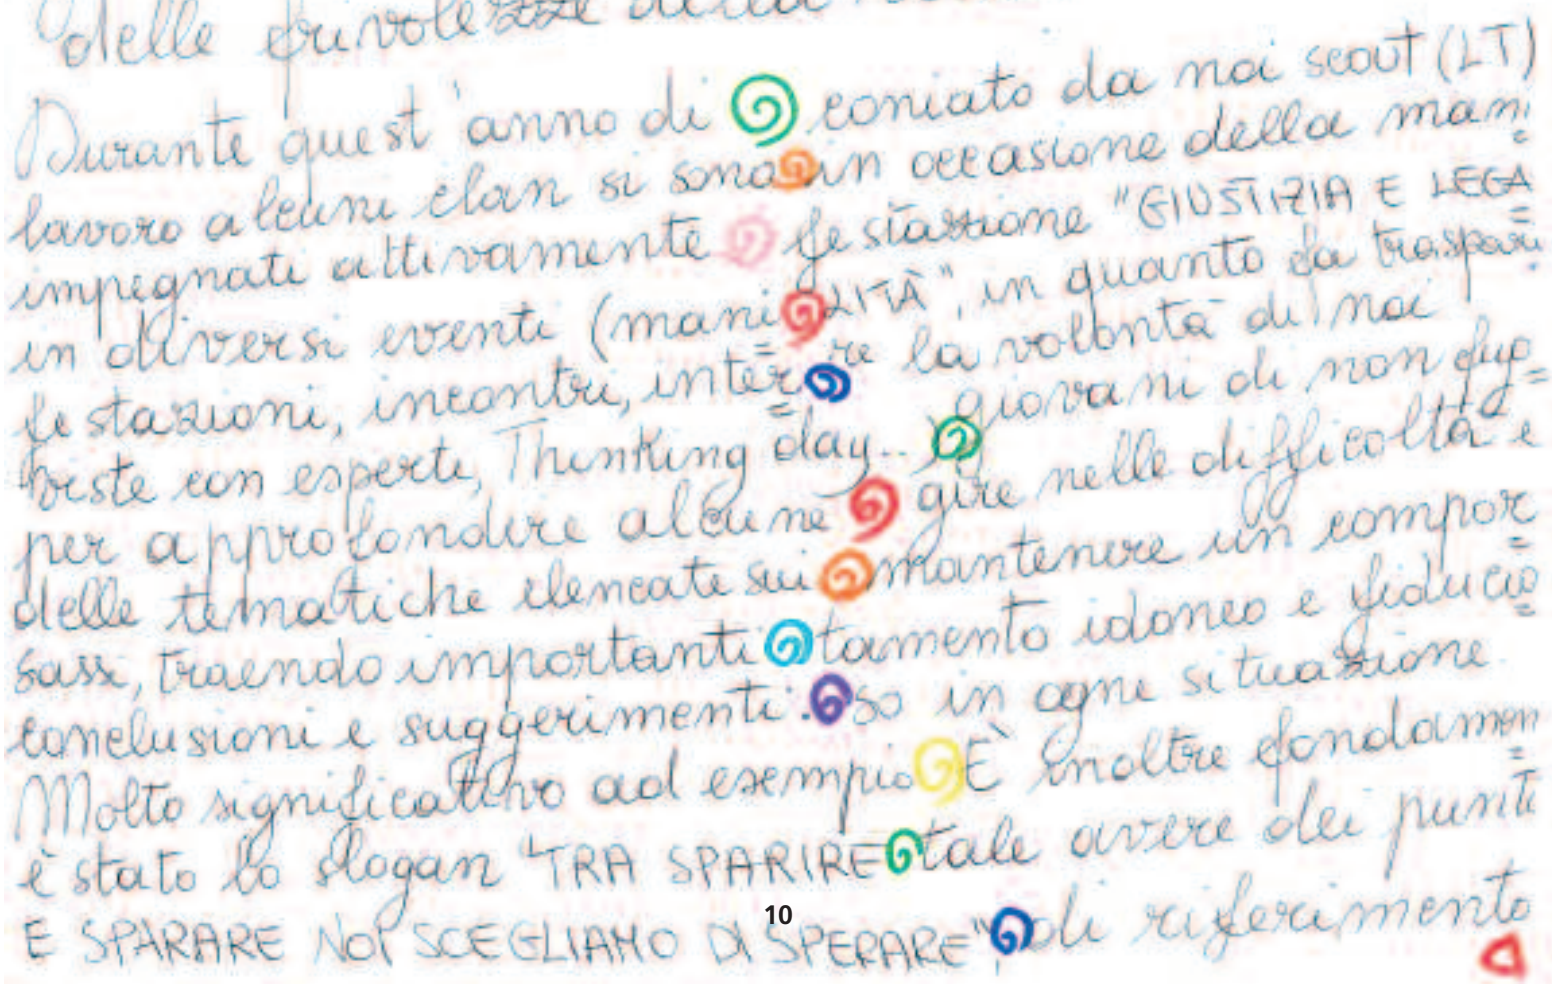 delle frivolezze della
Durante quest'anno di
lavoro alcuni clan si sono
impegnati attivamente
in diversi eventi (mani=
festazioni, incontri, inter=
viste con esperti, Thinking day...)
per approfondire alcune
delle tematiche elencate sui
sassi, traendo importanti
conclusioni e suggerimenti.
Molto significativo ad esempio
è stato lo slogan "TRA SPARIRE
E SPARARE NOI SCEGLIAMO DI SPERARE",
coniato da noi scout (LT)
in occasione della mani=
festazione "GIUSTIZIA E LEGA=
LITÀ", in quanto fa traspari=
re la volontà di noi
giovani di non fug=
gire nelle difficoltà e
mantenere un compor=
tamento idoneo e fiducio=
so in ogni situazione.
È inoltre fondamen=
tale avere dei punti
di riferimento
10